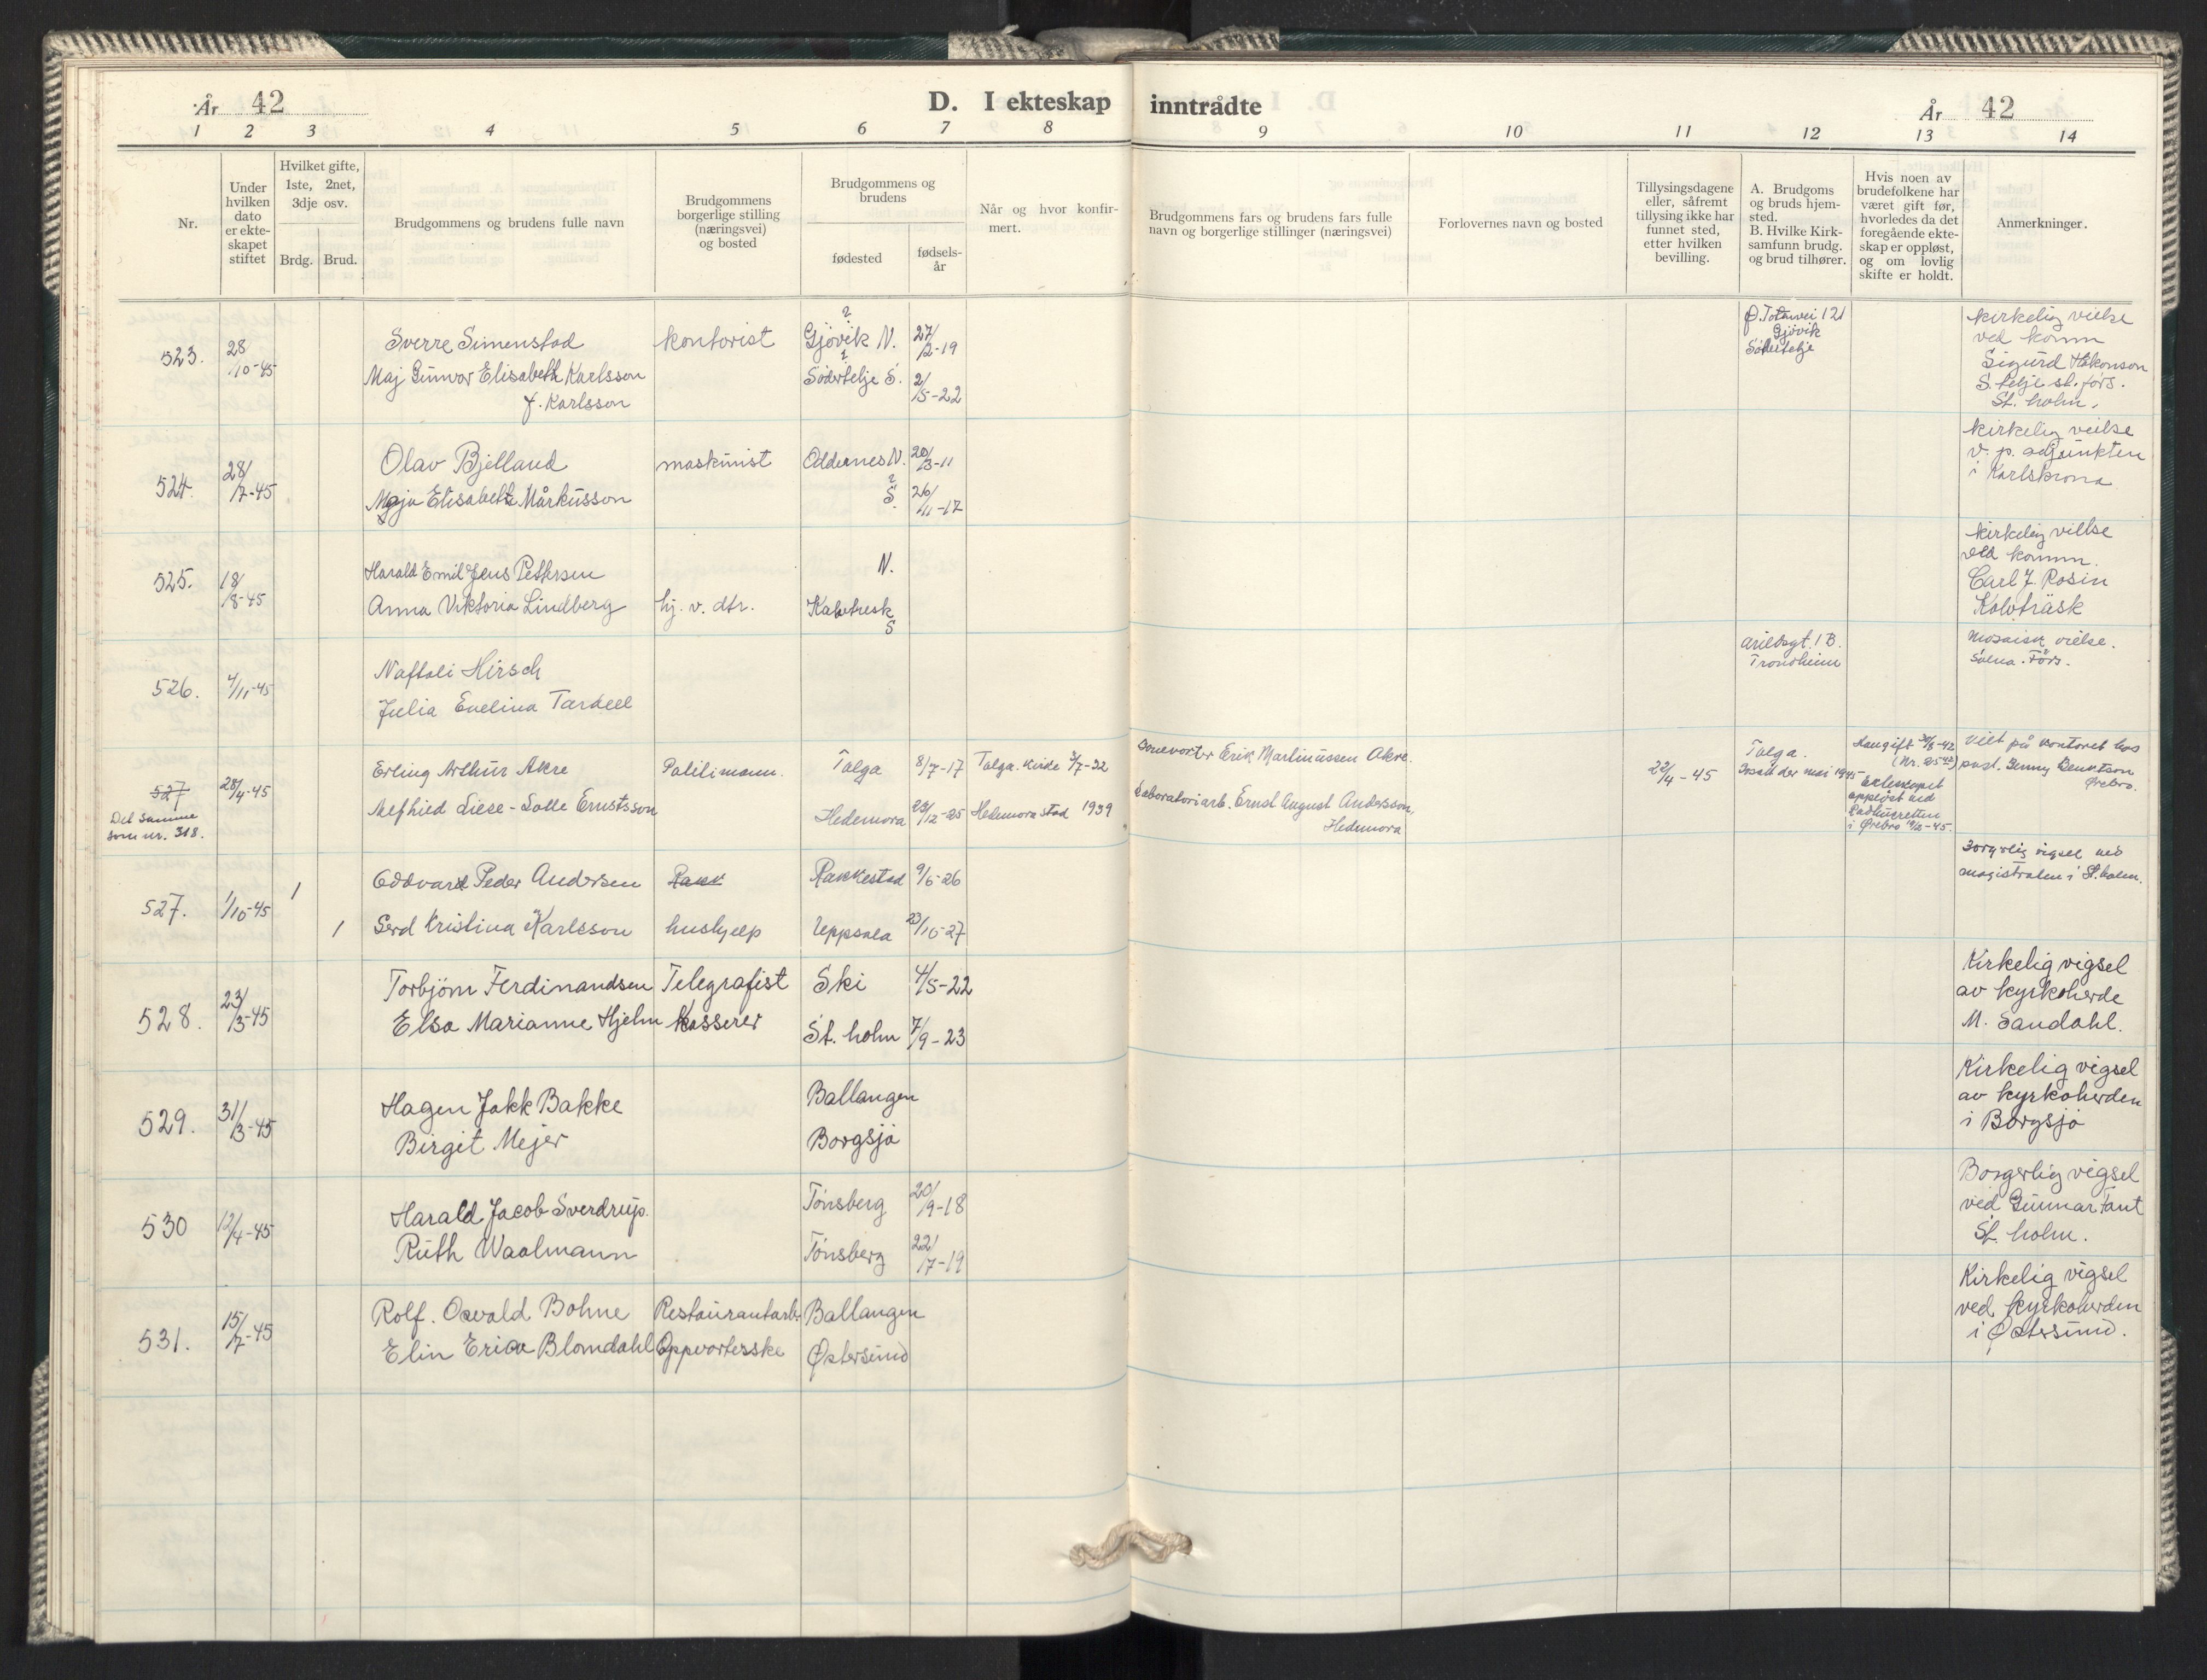 År 42
D. I ekteskap inntrådte
År 42
1 2 3 4 5 6 7 8 9 10 11 12 13 14
Nr.
Under hvilken dato er ekte-skapet stiftet
Hvilket gifte, 1ste, 2net, 3dje osv.
Brdg. Brud.
Brudgommens og brudens fulle navn
Brudgommens borgerlige stilling (næringsvei) og bosted
Brudgommens og brudens
fødested
fødsels-år
Når og hvor konfir-mert.
Brudgommens fars og brudens fars fulle navn og borgerlige stillinger (næringsvei)
Forlovernes navn og bosted
Tillysingsdagene eller, såfremt tillysing ikke har funnet sted, etter hvilken bevilling.
A. Brudgoms og bruds hjem-sted.
B. Hvilke Kirk-samfunn brudg. og brud tilhører.
Hvis noen av brudefolkene har været gift før, hvorledes da det foregående ekte-skap er oppløst, og om lovlig skifte er holdt.
Anmerkninger.
523. 28/10-45 Sverre Simenstad kontorist Gjøvik N. 27/2-19
Maj Gunvor Elisabeth Karlsson Södertelje S. 2/5-22
f. Karlsson
Ø. Totenvei 121
Gjøvik
Södertelje
kirkelig vielse
ved komm
Sigurd Håkonson
S.telje st. förs.
St. holm.
524. 28/7-45 Olav Bjelland maskinist Oddernes N. 20/3-11
Maja Elisabeth Mårkusson S. 26/11-17
kirkelig vielse
v. p. adjunkten
i Karlskrona
525. 18/8-45 Harald Emil Jens Pettersen N.
Anna Viktoria Lindberg hj. v. dtr. Kalvtresk S
kirkelig vielse
ved komm.
Carl J. Rosin
Kalvträsk
526. 4/11-45 Naftoli Hirsch
Julia Evelina Tardell
Arildsgt. 1 B.
Trondheim
Mosaisk vielse.
Solna. Förs.
527 28/4-45 Erling Arthur Akre Politimann. Tolga 8/7-17 Tolga. Kirke 3/7-32
Det samme
som nr. 318.
Liese-Lotte Ernstsson Hedemora 23/12-25 Hedemora stad 1939
Erik Martinussen Akre.
Laboratoriarb. Ernst August Andersson,
Hedemora
22/4-45
Tolga.
Bosatt der mai 1945
Ekteskapet
oppløst ved
Rådhusretten
i Ørebro
Viet på kontoret hos
past. Benny Bengtson
Ørebro.
527. 1/10-45 1 Oddvard Peder Andersen Rakk Rakkestad 9/6-26
1 Gerd Kristina Karlsson hushjelp Uppsala 23/10-27
Borgerlig vigsel ved
magistraten i St. holm.
528. 23/3-45 Torbjørn Ferdinandsen Telegrafist Ski 4/5-22
Elsa Marianne Hjelm Kasserer St. holm 7/9-23
Kirkelig vigsel
av kyrkoherde
M. Sandahl.
529. 31/3-45 Hagen Jakk Bakke Ballangen
Birgit Mejer Borgsjø
Kirkelig vigsel
av kyrkoherden
i Borgsjø
530 12/4-45 Harald Jacob Sverdrup. Tønsberg 20/9-18
Ruth Waalmann Tønsberg 22/7-19
Borgerlig vigsel
ved Gunnar Fant
St. holm.
531. 15/7-45 Rolf. Osvald Bohne Restaurantarb. Ballangen
Elin Erica Blomdahl Oppvarterske Østersund
Kirkelig vigsel
ved kyrkoherden
i Østersund.